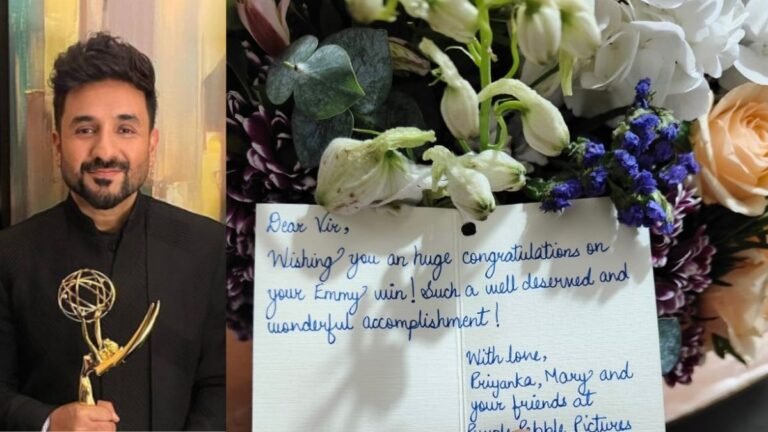 Dear Vir,
Wishing you an huge congratulations on
your Emmy win! Such a well deserved and
wonderful accomplishment!
With love,
Priyanka, Mary and
your friends at
Purple Pebble Pictures